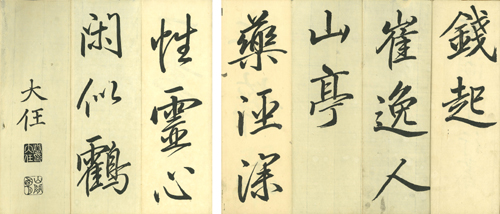 錢起
崔逸人
山亭
藥徑深
性靈心
閑似鶴
大任